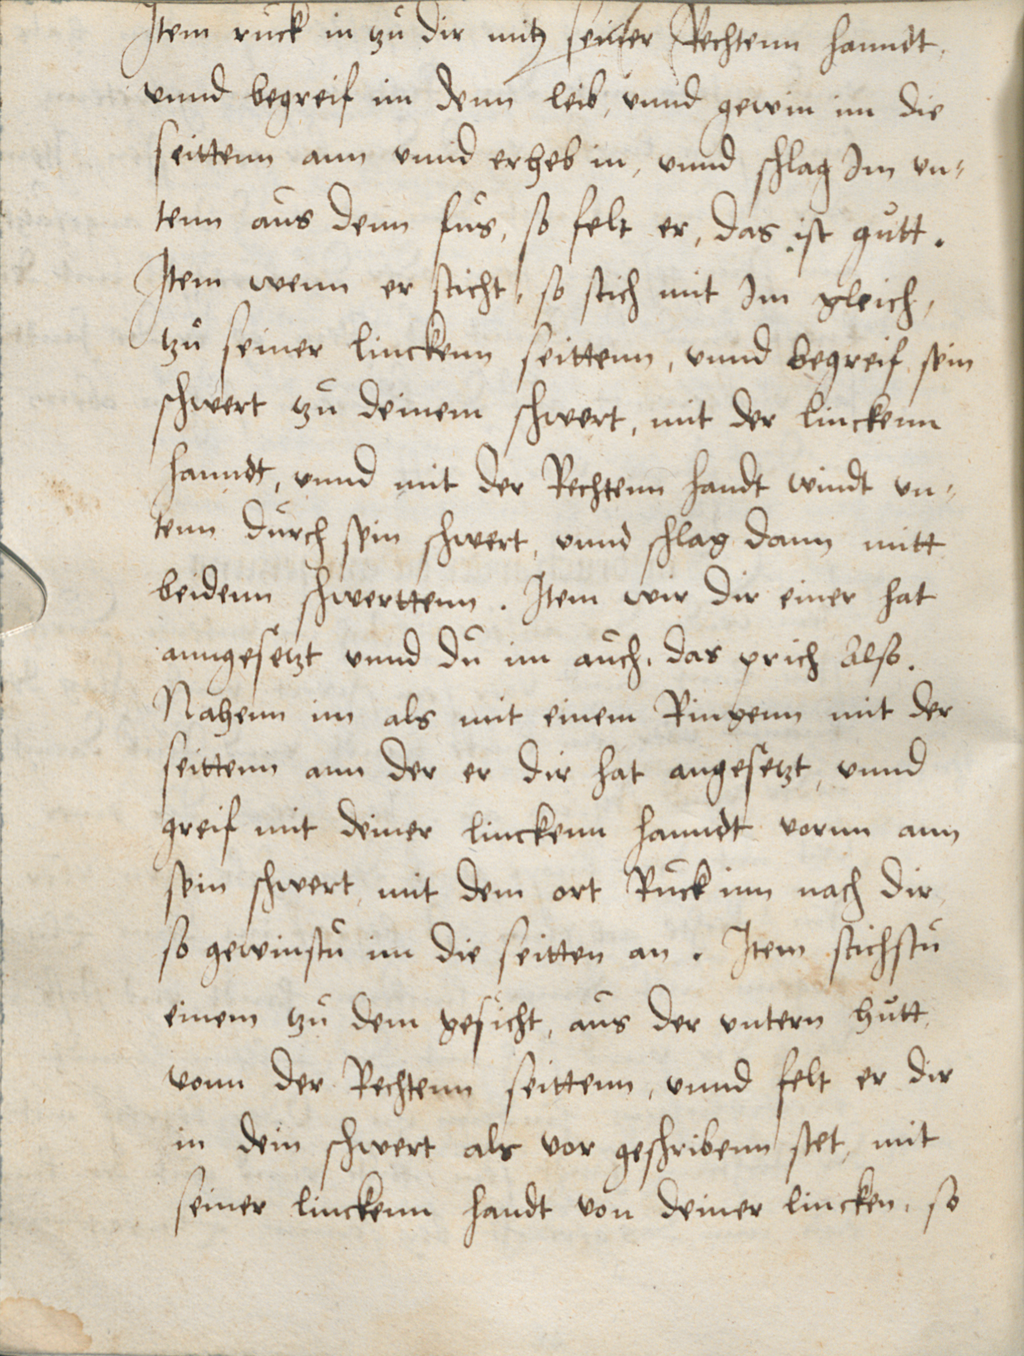 Item ruck in tzu dir mit seiner Rechtenn hanndt,
vnnd begreif im denn leib, vnnd gewin im die
seittenn ann vnnd erheb in, vnnd schlag Im vn-
tenn aus denn fus, so felt er, das ist gutt.
Item wenn er sticht, so stich mit Im gleich,
tzu seiner linckenn seittenn, vnnd begreif sein
schwert tzu deinem schwert, mit der linckenn
hanndt, vnnd mit der Rechtenn handt windt vn-
tenn durch sein schwert, vnnd schlag dann mitt
beidenn schwerttenn. Item wir dir einer hat
anngesetzt vnnd du im auch, das prich Also.
Nahenn im als mit einem Ringenn mit der
seittenn ann der er dir hat angesetzt, vnnd
greif mit deiner linckenn hanndt vornn ann
sein schwert, mit dem ort Ruck inn nach dir,
so gewinstu im die seitten an. Item stichstu
einem tzu dem gesicht, aus der vntern hutt,
vonn der Rechtenn seittenn, vnnd felt er dir
in dein schwert als vor geschribenn stet, mit
seiner linckenn handt von deiner lincken, so